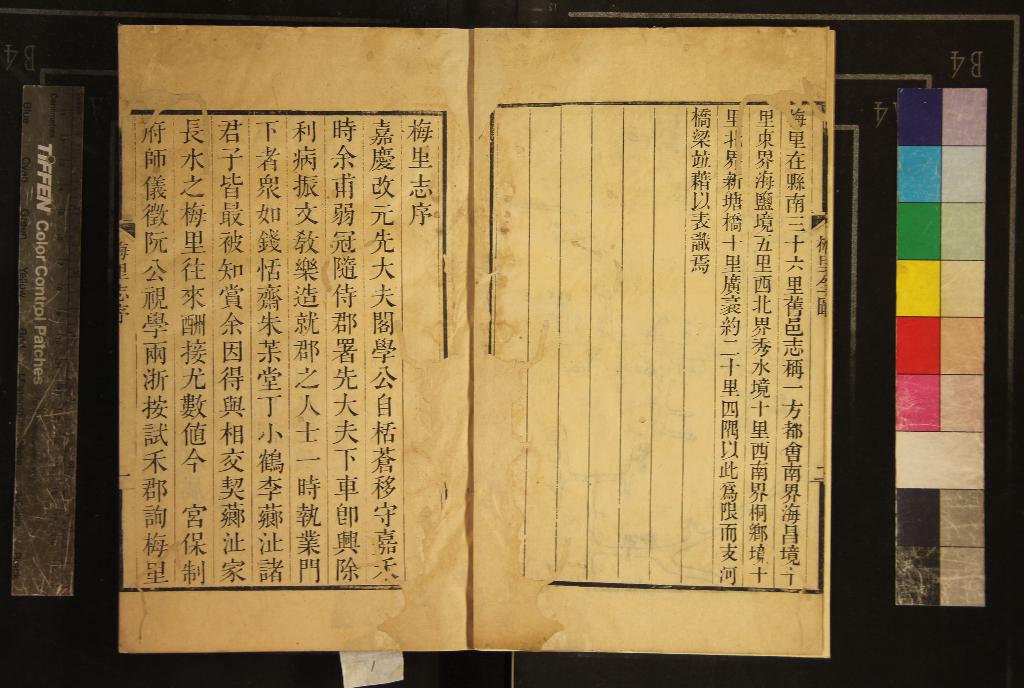 梅里在縣南三十六里舊邑志稱一方都會南界海昌境十
里東界海鹽境五里西北界秀水境十里西南界桐鄉境十
里北界新塘橋十里廣袤約二十里四隅以此爲限而支河
橋梁並藉以表識焉
二
梅里志序
嘉慶改元先大夫閣學公自栝蒼移守嘉禾
時余甫弱冠隨侍郡署先大夫下車卽興除
利病振文敎樂造就郡之人士一時執業門
下者衆如錢恬齋朱茮堂丁小鶴李薌沚諸
君子皆最被知賞余因得與相交契薌沚家
長水之梅里往來酬接尤數値今 宮保制
府師儀徵阮公視學兩浙按試禾郡詢梅里
梅里志序
一
B4
B4
A4
TIFFEN Color Control Patches
1